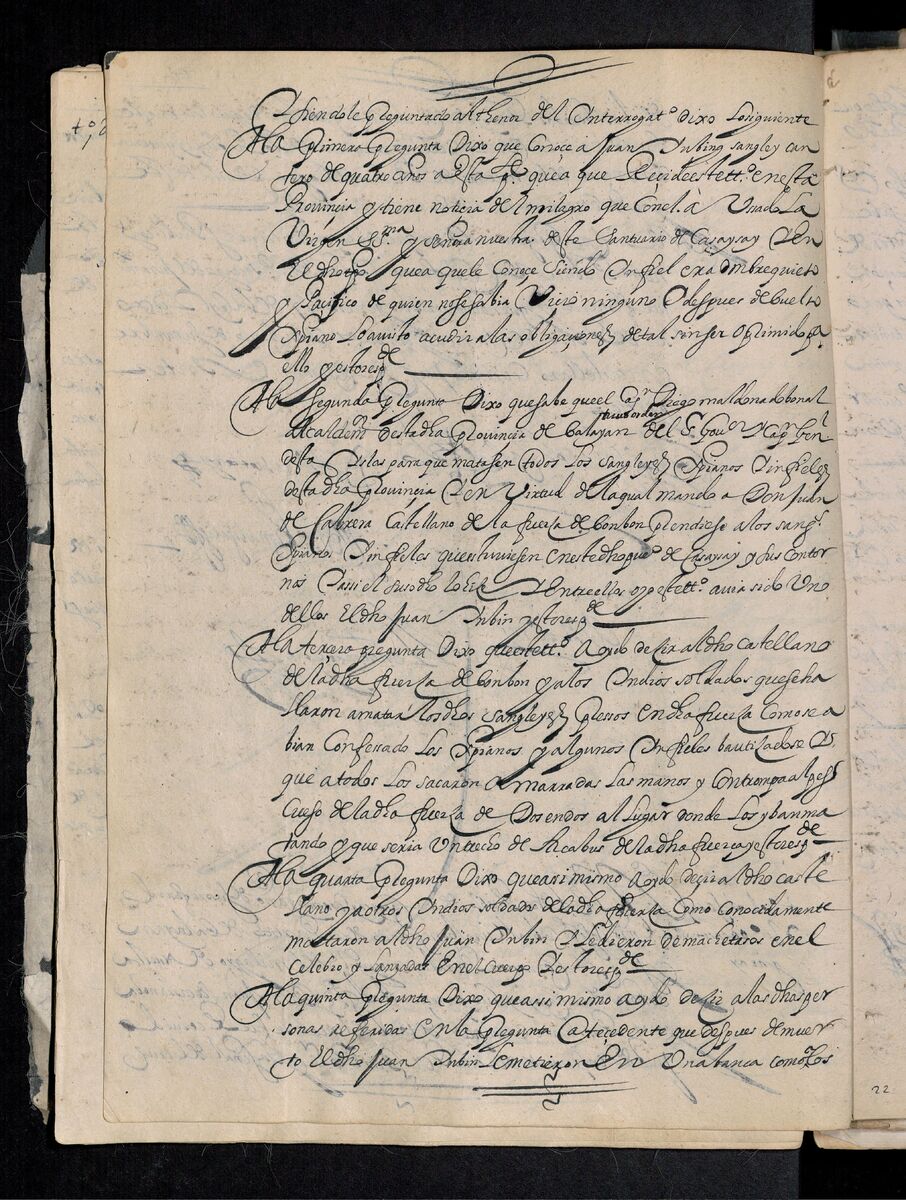 Y siendole preguntado al thenor del Ynterrogat.º dixo lo siguiente
A la primera pregunta Dixo que conoce a Juan Ynbing sangley can
tero de quatro años a esta p.te que a que Recide este tt.º en esta
Provincia y tiene noticia del milagro que a Vnado La
Virgen SS.ma y señora nuestra deste Santuario de Casaysay Y en
El dho tpo que a que le Conoce siendo Ynfiel era ombre quieto
y Pacifico de quien no se sabia Vicio ninguno Y despues de buelto
Xpiano Lo a visto acudir a las obligaciones de tal sin ser oprimido pa
ello y esto resp.de
A la segunda pregunta Dixo que sabe que el cap.n Diego maldonado bonal
Alcalde m.or desta dha Provincia de balayan tuuo orden del S.r Gou.or y Cap.n Gen.l
destas Yslas para que matasen todos los sangleyes Xpianos Y infieles
desta dha Provincia Y en Virtud de la qual mando a Don Juan
de Cabrera Castellano de la fuerza de bonbon prendiese a los sang.s
Xpianos Y infieles que estuuiesen en este dho pue.º de Casaysay y sus Contor
nos Y assi el susodho lo hizo Y entre ellos oyo este tt.º auia sido Vno
dellos El dho Juan Ynbin y esto resp.de
A la tercera pregunta Dixo que este tt.º a oydo dezir al dho castellano
de la dha fuerza de bonbon y a los Yndios soldados que se ha
llaron a matar los dhos sangleyes pressos en dha fuerza como se a
bian Confesado Los Xpianos y algunos Ynfieles bautizadose Y
que a todos Los sacaron amarradas las manos y Con trompa al pes
cueso de la dha fuerza de Dos en dos al Lugar donde Los yban ma
tando y que seria Vn trecho de Alcabus de la dha fuerca y esto resp.de
A la quarta pregunta Dixo que asi mismo a oydo deçir al dho caste
llano y a otros Yndios soldados de la dha fuerza Como conocidamente
mattaron al dho Juan Ynbin Y le dieron de machetasos en el
Celebro y Lanzadas en el cuerpo Y esto resp.de
A la quinta pregunta Dixo que asi mismo a oydo dezir a las dhas per
sonas referidas en la pregunta antecedente que despues de muer
to El dho Juan Ynbin Le metieron En Vna banca como los
22